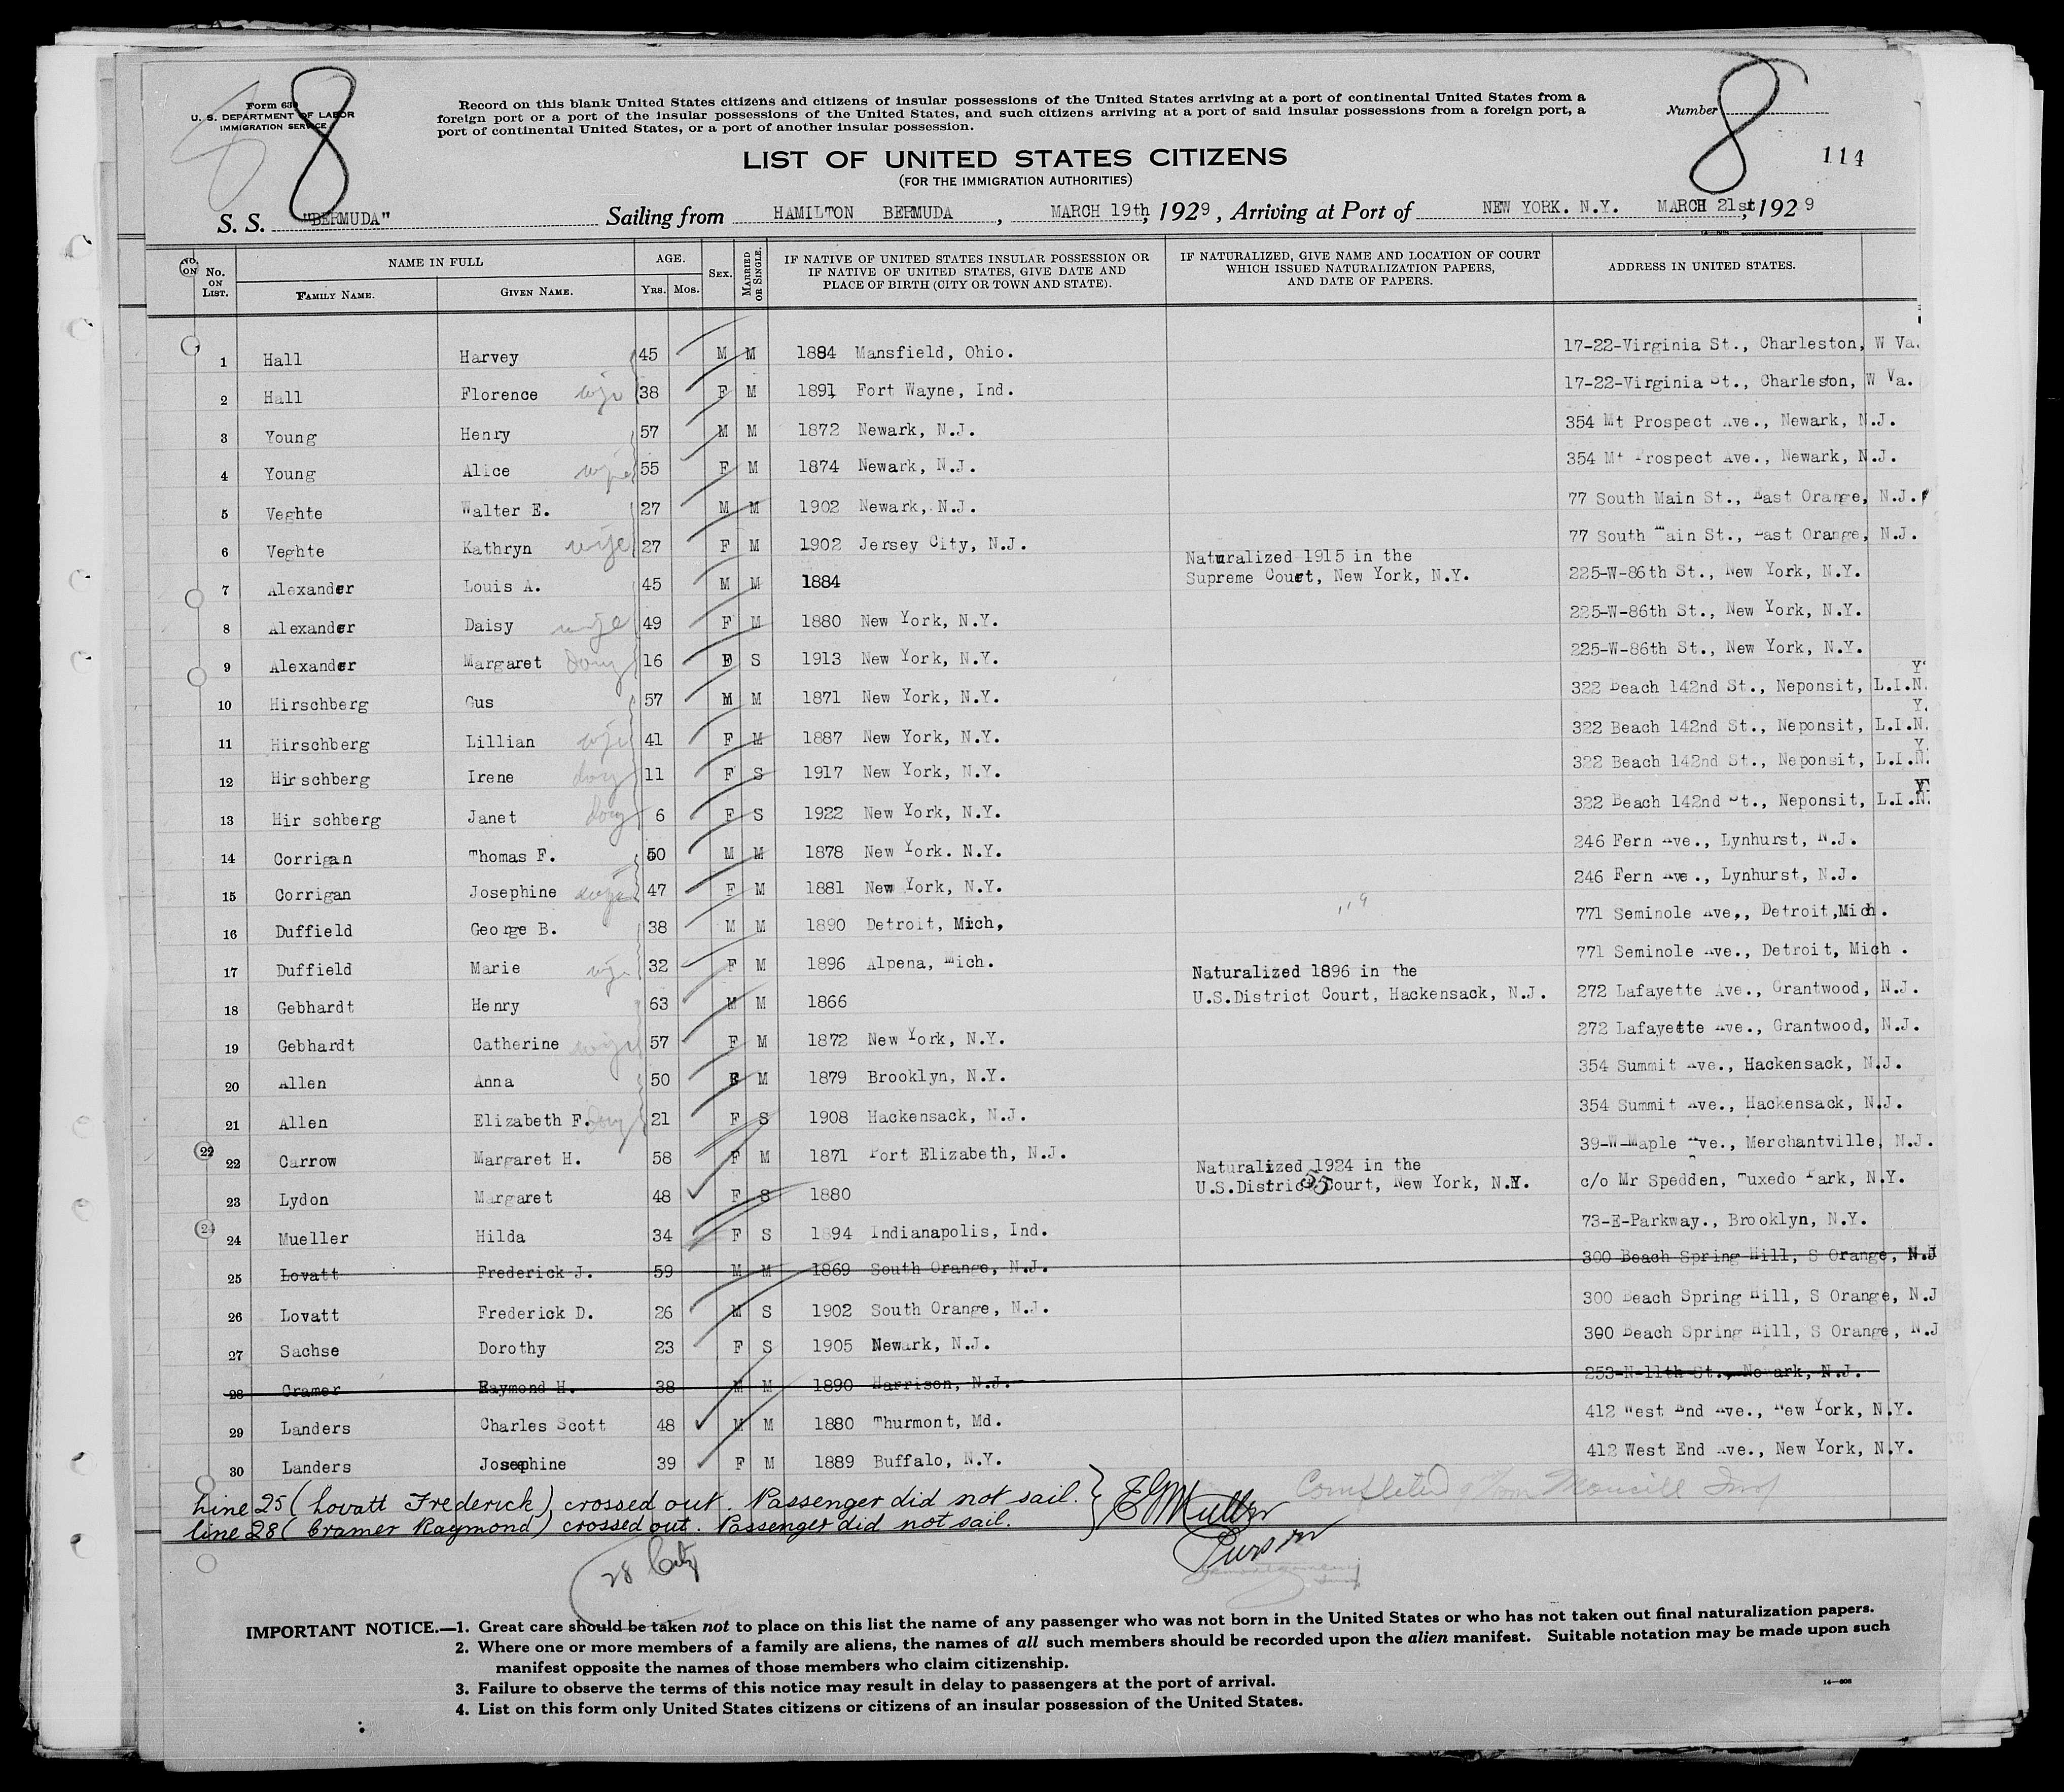 8
8
Form 630
U. S. DEPARTMENT OF LABOR
IMMIGRATION SERVICE
Record on this blank United States citizens and citizens of insular possessions of the United States arriving at a port of continental United States from a
foreign port or a port of the insular possessions of the United States, and such citizens arriving at a port of said insular possessions from a foreign port, a
port of continental United States, or a port of another insular possession.
Number
114
LIST OF UNITED STATES CITIZENS
(FOR THE IMMIGRATION AUTHORITIES)
S. S. "BERMUDA" Sailing from HAMILTON BERMUDA, MARCH 19th, 1929, Arriving at Port of NEW YORK. N.Y. MARCH 21st, 1929
No. ON LIST. NAME IN FULL FAMILY NAME. GIVEN NAME. AGE. YRS. MOS. SEX. MARRIED OR SINGLE. IF NATIVE OF UNITED STATES INSULAR POSSESSION OR IF NATIVE OF UNITED STATES, GIVE DATE AND PLACE OF BIRTH (CITY OR TOWN AND STATE). IF NATURALIZED, GIVE NAME AND LOCATION OF COURT WHICH ISSUED NATURALIZATION PAPERS, AND DATE OF PAPERS. ADDRESS IN UNITED STATES.
1 Hall Harvey 45 M M 1884 Mansfield, Ohio. 17-22-Virginia St., Charleston, W Va.
2 Hall Florence wife 38 F M 1891 Fort Wayne, Ind. 17-22-Virginia St., Charleston, W Va.
3 Young Henry 57 M M 1872 Newark, N.J. 354 Mt Prospect Ave., Newark, N.J.
4 Young Alice wife 55 F M 1874 Newark, N.J. 354 Mt Prospect Ave., Newark, N.J.
5 Veghte Walter E. 27 M M 1902 Newark, N.J. 77 South Main St., East Orange, N.J.
6 Veghte Kathryn wife 27 F M 1902 Jersey City, N.J. 77 South Main St., East Orange, N.J.
7 Alexander Louis A. 45 M M 1884 Naturalized 1915 in the Supreme Court, New York, N.Y. 225-W-86th St., New York, N.Y.
8 Alexander Daisy wife 49 F M 1880 New York, N.Y. 225-W-86th St., New York, N.Y.
9 Alexander Margaret 16 F S 1913 New York, N.Y. 225-W-86th St., New York, N.Y.
10 Hirschberg Gus 57 M M 1871 New York, N.Y. 322 Beach 142nd St., Neponsit, L.I.N.Y.
11 Hirschberg Lillian wife 41 F M 1887 New York, N.Y. 322 Beach 142nd St., Neponsit, L.I.N.Y.
12 Hirschberg Irene 11 F S 1917 New York, N.Y. 322 Beach 142nd St., Neponsit, L.I.N.Y.
13 Hir schberg Janet 6 F S 1922 New York, N.Y. 322 Beach 142nd St., Neponsit, L.I.N.Y.
14 Corrigan Thomas F. 50 M M 1878 New York. N.Y. 246 Fern Ave., Lynhurst, N.J.
15 Corrigan Josephine 47 F M 1881 New York, N.Y. 246 Fern Ave., Lynhurst, N.J.
16 Duffield George B. 38 M M 1890 Detroit, Mich, 771 Seminole Ave,, Detroit,Mich.
17 Duffield Marie wife 32 F M 1896 Alpena, Mich. 771 Seminole Ave., Detroit, Mich .
18 Gebhardt Henry 63 M M 1866 Naturalized 1896 in the U.S.District Court, Hackensack, N.J. 272 Lafayette Ave., Grantwood, N.J.
19 Gebhardt Catherine wife 57 F M 1872 New York, N.Y. 272 Lafayette Ave., Grantwood, N.J.
20 Allen Anna 50 F M 1879 Brooklyn, N.Y. 354 Summit Ave., Hackensack, N.J.
21 Allen Elizabeth F. 21 F S 1908 Hackensack, N.J. 354 Summit Ave., Hackensack, N.J.
22 Carrow Margaret H. 58 F M 1871 Port Elizabeth, N.J. 39-W-Maple Ave., Merchantville, N.J.
23 Lydon Margaret 48 F S 1880 Naturalized 1924 in the U.S.District Court, New York, N.Y. c/o Mr Spedden, Tuxedo Park, N.Y.
24 Mueller Hilda 34 F S 1894 Indianapolis, Ind. 73-E-Parkway., Brooklyn, N.Y.
25 Lovatt Frederick J. 59 M M 1869 South Orange, N.J. 300 Beach Spring Hill, S Orange, N.J
26 Lovatt Frederick D. 26 M S 1902 South Orange, N.J. 300 Beach Spring Hill, S Orange, N.J
27 Sachse Dorothy 23 F S 1905 Newark, N.J. 300 Beach Spring Hill, S Orange, N.J
28 Cramer Raymond H. 38 M M 1890 Harrison, N.J. 253-N-11th St., Newark, N.J.
29 Landers Charles Scott 48 M M 1880 Thurmont, Md. 412 West End Ave., New York, N.Y.
30 Landers Josephine 39 F M 1889 Buffalo, N.Y. 412 West End Ave., New York, N.Y.
Line 25 (Lovatt Frederick) crossed out. Passenger did not sail.
line 28 (Cramer Raymond) crossed out. Passenger did not sail.
Purser
28 City
IMPORTANT NOTICE.—1. Great care should be taken not to place on this list the name of any passenger who was not born in the United States or who has not taken out final naturalization papers.
2. Where one or more members of a family are aliens, the names of all such members should be recorded upon the alien manifest. Suitable notation may be made upon such
manifest opposite the names of those members who claim citizenship.
3. Failure to observe the terms of this notice may result in delay to passengers at the port of arrival.
4. List on this form only United States citizens or citizens of an insular possession of the United States.